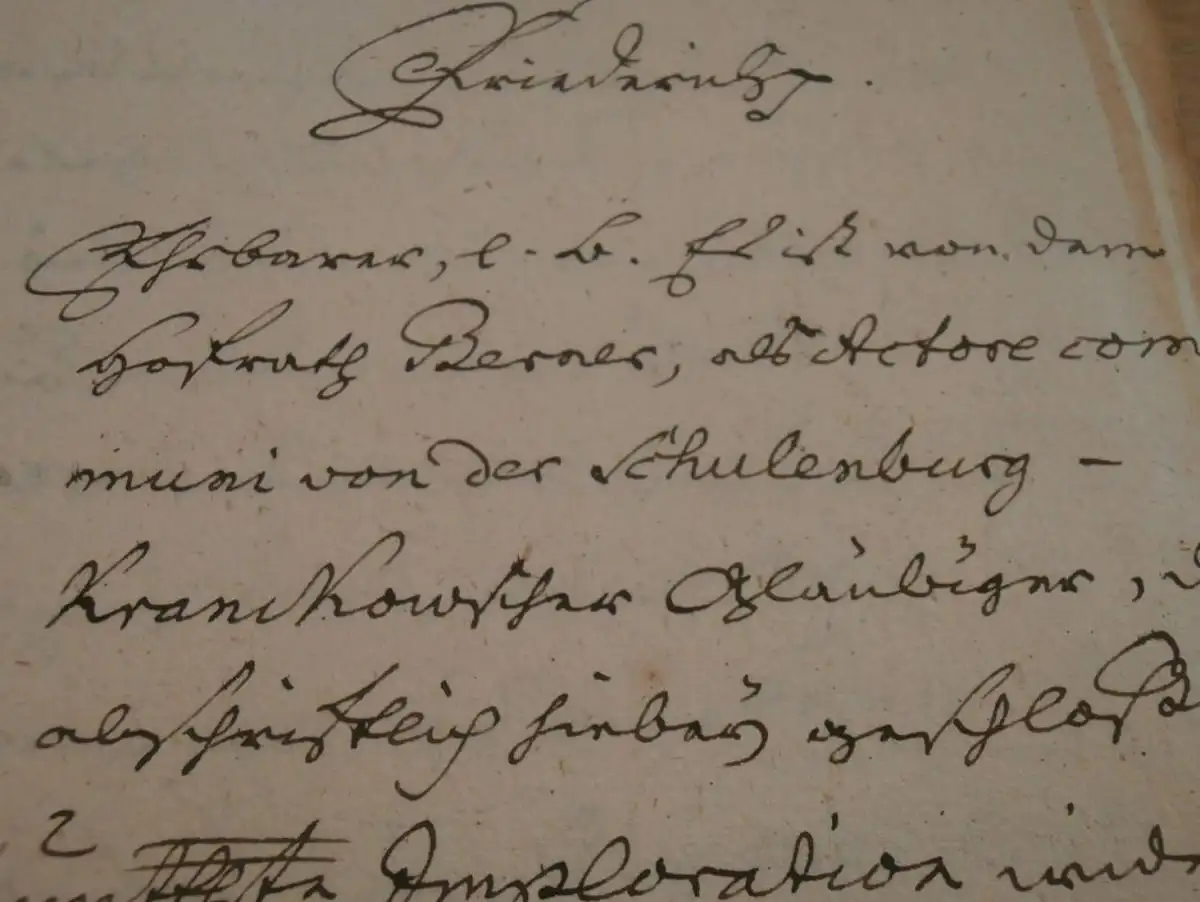 Friederich.
Ehrbarer, l. b. Es ist von dem
Hofrath Berner, als Actore com
muni von der Schulenburg -
Kranckowscher Gläubiger,
abschriftlich hiebey geschloß
2
Imploration wide